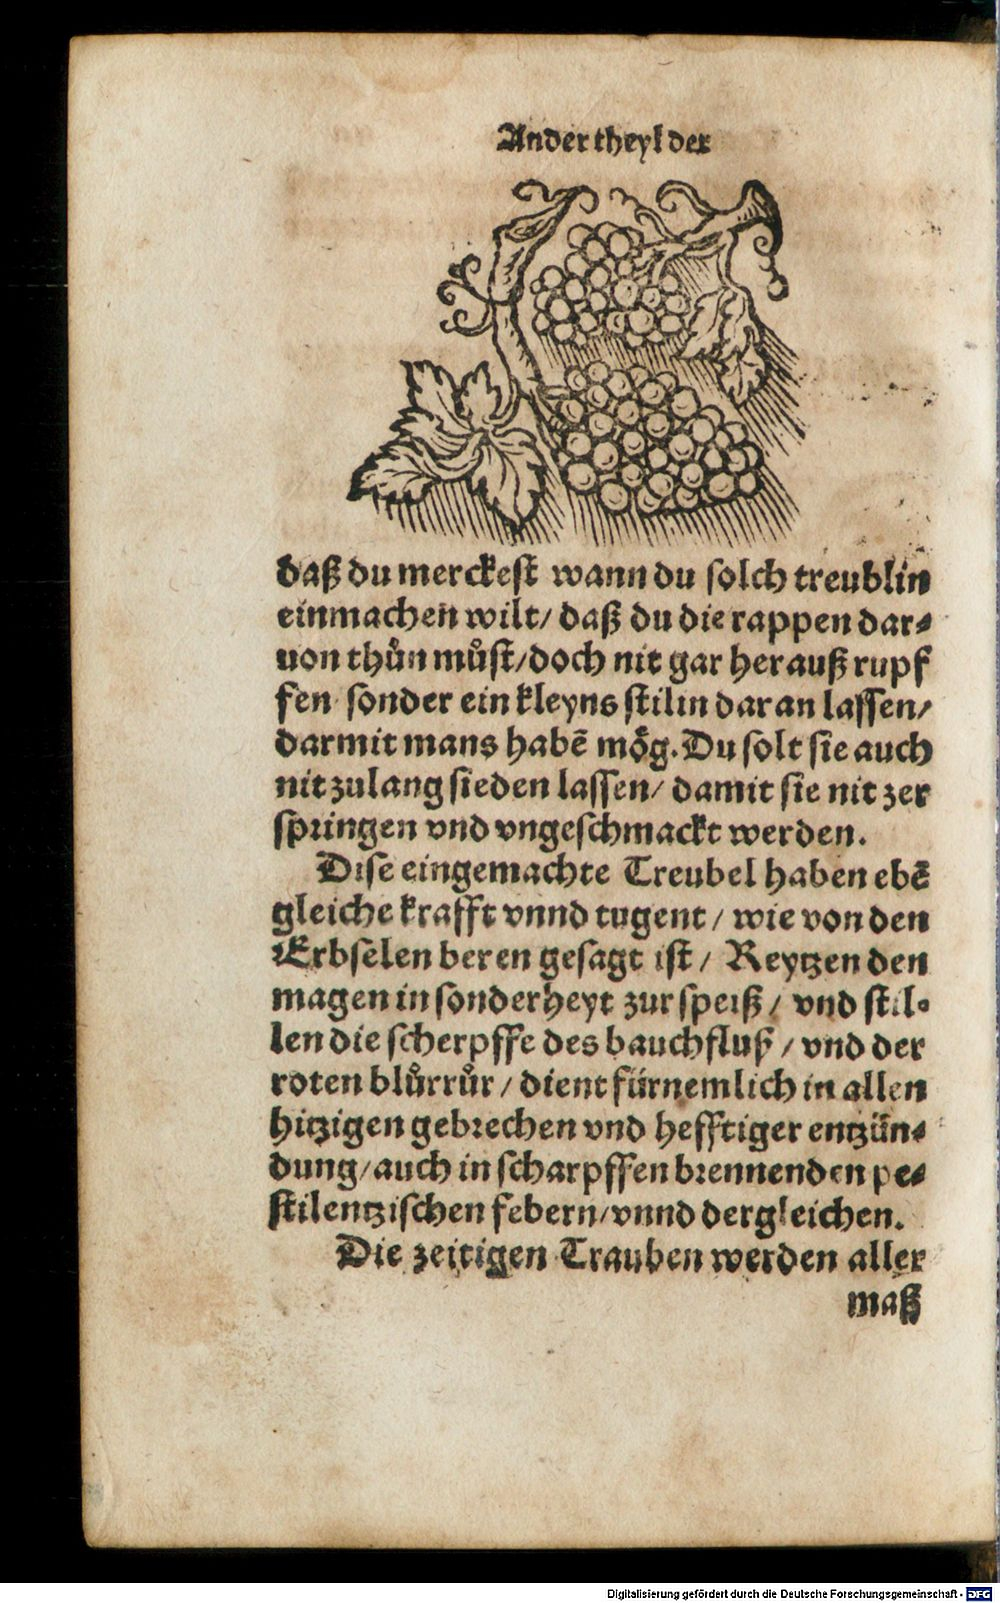 Ander theyl der
daß du merckest wann du solch treublin
einmachen wilt/ daß du die rappen dar⸗
uon thůn můst/doch nit gar her auß rupf
fen sonder ein kleyns stilin dar an lassen/
darmit mans habē mög. Du solt sie auch
nit zulang sieden lassen/ damit sie nit zer
springen vnd vngeschmackt werden.
Dise eingemachte Treubel haben ebē
gleiche krafft vnnd tugent/ wie von den
Erbselen beren gesagt ist/ Reytzen den
magen in sonderheyt zur speiß/ vnd stil⸗
len die scherpffe des bauchfluß/ vnd der
roten blůrrůr/ dient fürnemlich in allen
hitzigen gebrechen vnd hefftiger entzün⸗
dung/auch in scharpffen brennenden pe⸗
stilentzischen febern/vnnd dergleichen.
Die zeitigen Trauben werden aller
maß
Digitalisierung gefördert durch die Deutsche Forschungsgemeinschaft - DFG